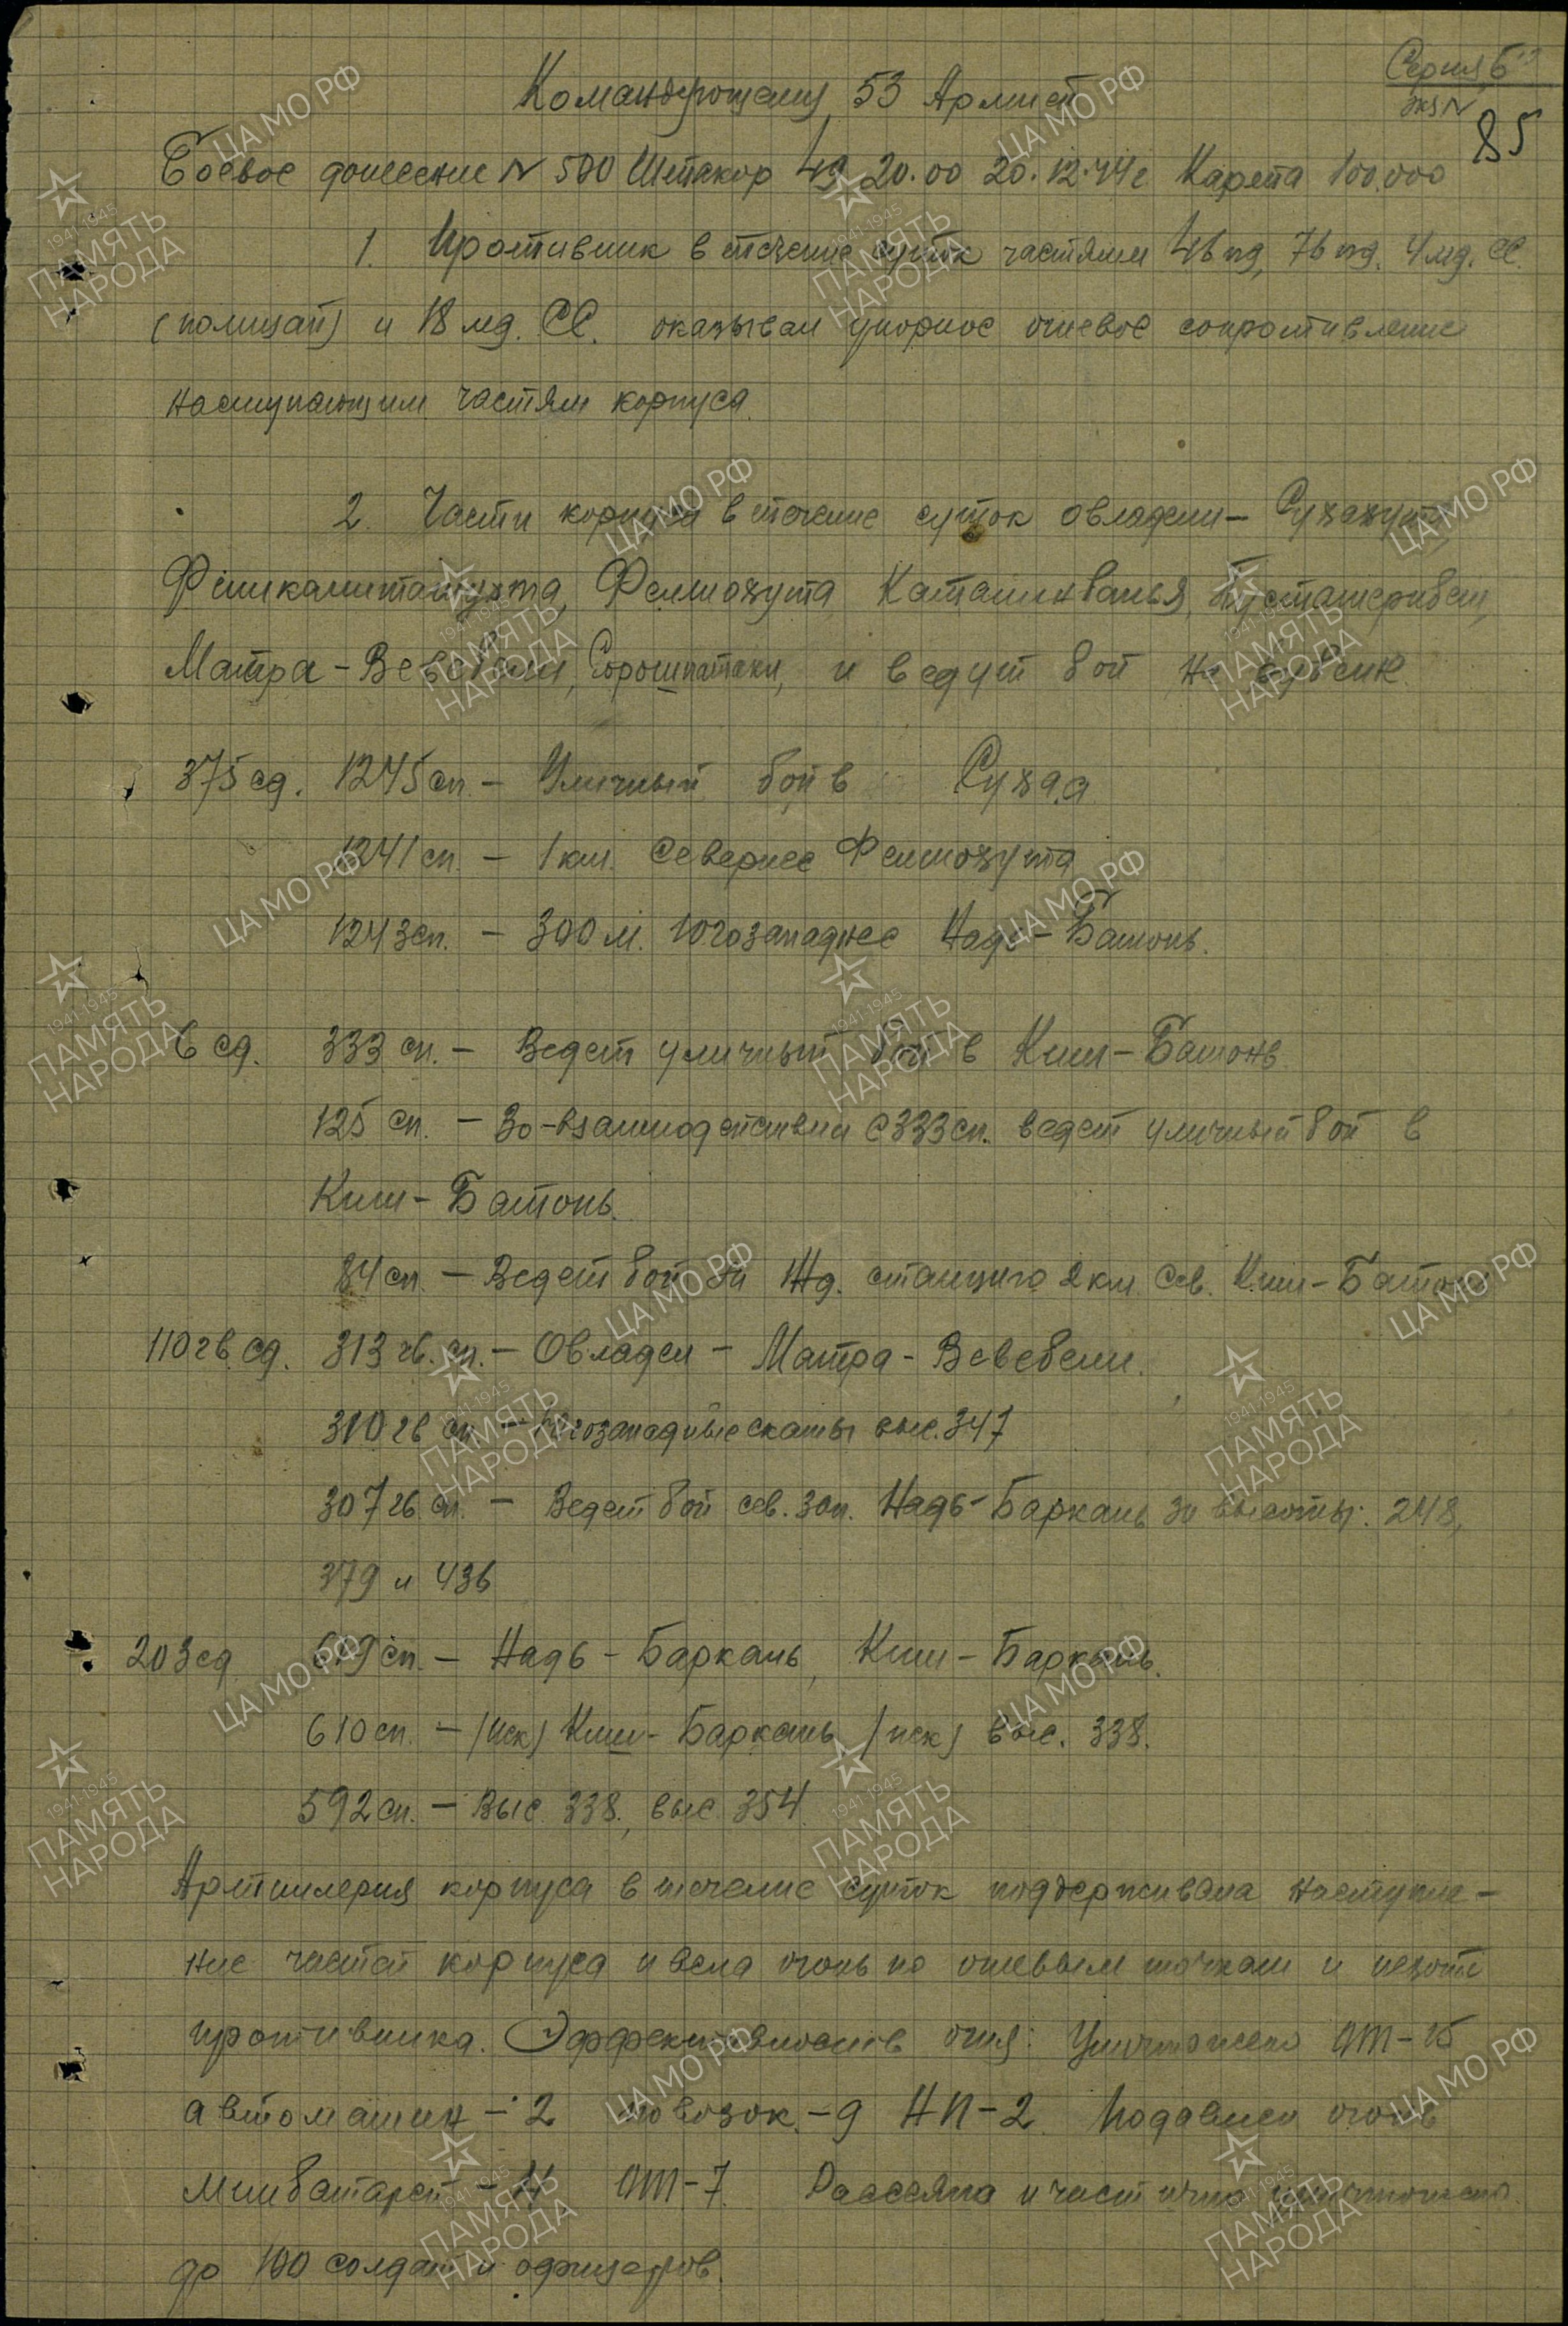 Серия „Б"
экз N
85
Командующему 53 Армией
Боевое донесение N 500 Штакор 49 20.00 20.12.44г Карта 100.000
1. Противник в течение суток частями 46 пд, 76 пд. 4 мд. СС.
(полицай) и 18 мд. СС. оказывал упорное огневое сопротивление
наступающим частям корпуса.
2. Части корпуса в течение суток овладели –
Матра – Веребели, Дорошпатаки, и ведут бой на рубеже.
375 сд. 1245 сп. – Уличный бой в Суха.а
1241 сп. – 1 км. Севернее
1243 сп. – 300 м. Югозападнее Надь – Батонь.
6 сд. 333 сп. – Ведет уличный бой в Киш – Батонь
125 сп. – Во-взаимодействии с 333 сп. ведет уличный бой в
Киш – Батонь.
84 сп. – Ведет бой за Жд. станцию 2 км. Сев. Киш – Батонь
110 гв. сд. 313 гв. сп. – Овладел – Матра – Веребели.
310 гв сп – Югозападные скаты выс. 347
307 гв. сп. – Ведет бой сев. зап. Надь – Баркань за высоты: 248,
379 и 436
203 сд 619 сп. – Надь – Баркань, Киш – Баркань.
610 сп. – /иск/ Киш – Баркань /иск/ выс. 338.
592 сп. – Выс 338., выс 354
Артиллерия корпуса в течение суток поддерживала наступле-
ние частей корпуса и вела огонь по огневым точкам и пехоте
противника. Эффективность огня: Уничтожено ОТ – 15
автомашин – 2 повозок – 9 НП – 2. Подавлен огонь
минбатарей – 4 ОТ – 7. Рассеяно и частично уничтожено
до 100 солдат и офицеров.
ЦА МО РФ
1941-1945
ПАМЯТЬ
НАРОДА